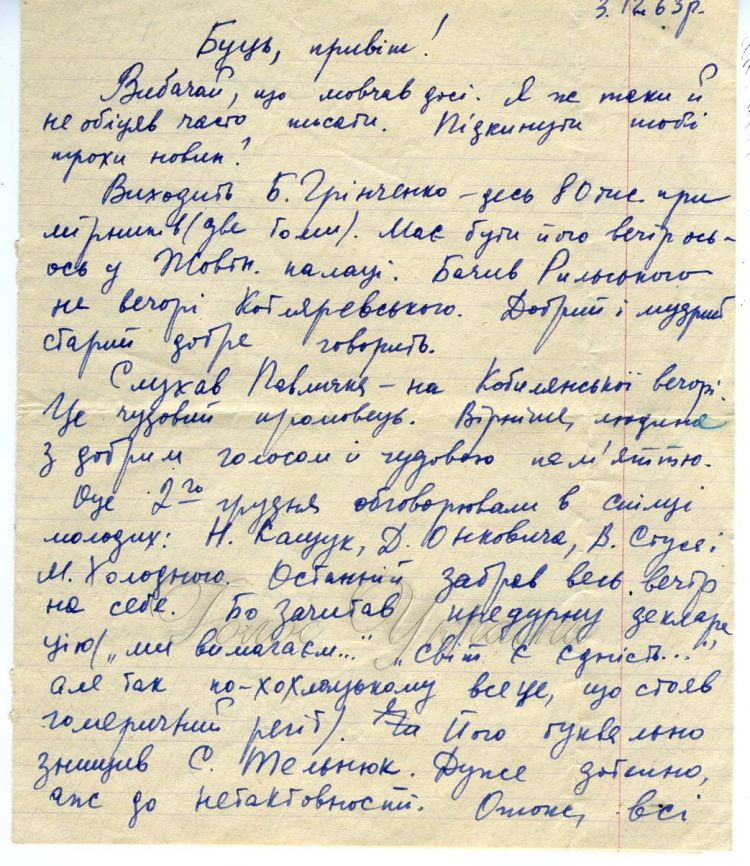 3.12.63р.
Буць, привіт!
Вибачай, що мовчав досі. Я ж таки й
не обіцяв часто писати. Підкинути тобі
трохи новин?
Виходить Б. Грінченко – десь 80 тис. при
мірників (две томи). Має бути його вечір ось-
ось у Жовтн. палаці. Бачив Рильського
не вечорі Котляревського. Добрий і мудрий
старий добре говорить.
Слухав Павличка – на Кобилянської вечорі.
Це чудовий промовець. Вірніше, людина
з добрим голосом й чудовою пам'яттю.
Оце 2го грудня обговорювали в спілці
молодих: Н. Кащук, Д. Онковича, В. Стуса і
М. Холодного. Останній забрав весь вечір
на себе. Бо зачитав предурну деклара
цію („ми вимагаєм...” „світ є єдність...”
але так по-хохлацькому все це, що стояв
гомеричний регіт). Його буквально
знищив С. Тельнюк. Дуже дотепно,
аж до нетактовності. Отож, всі
Голос України